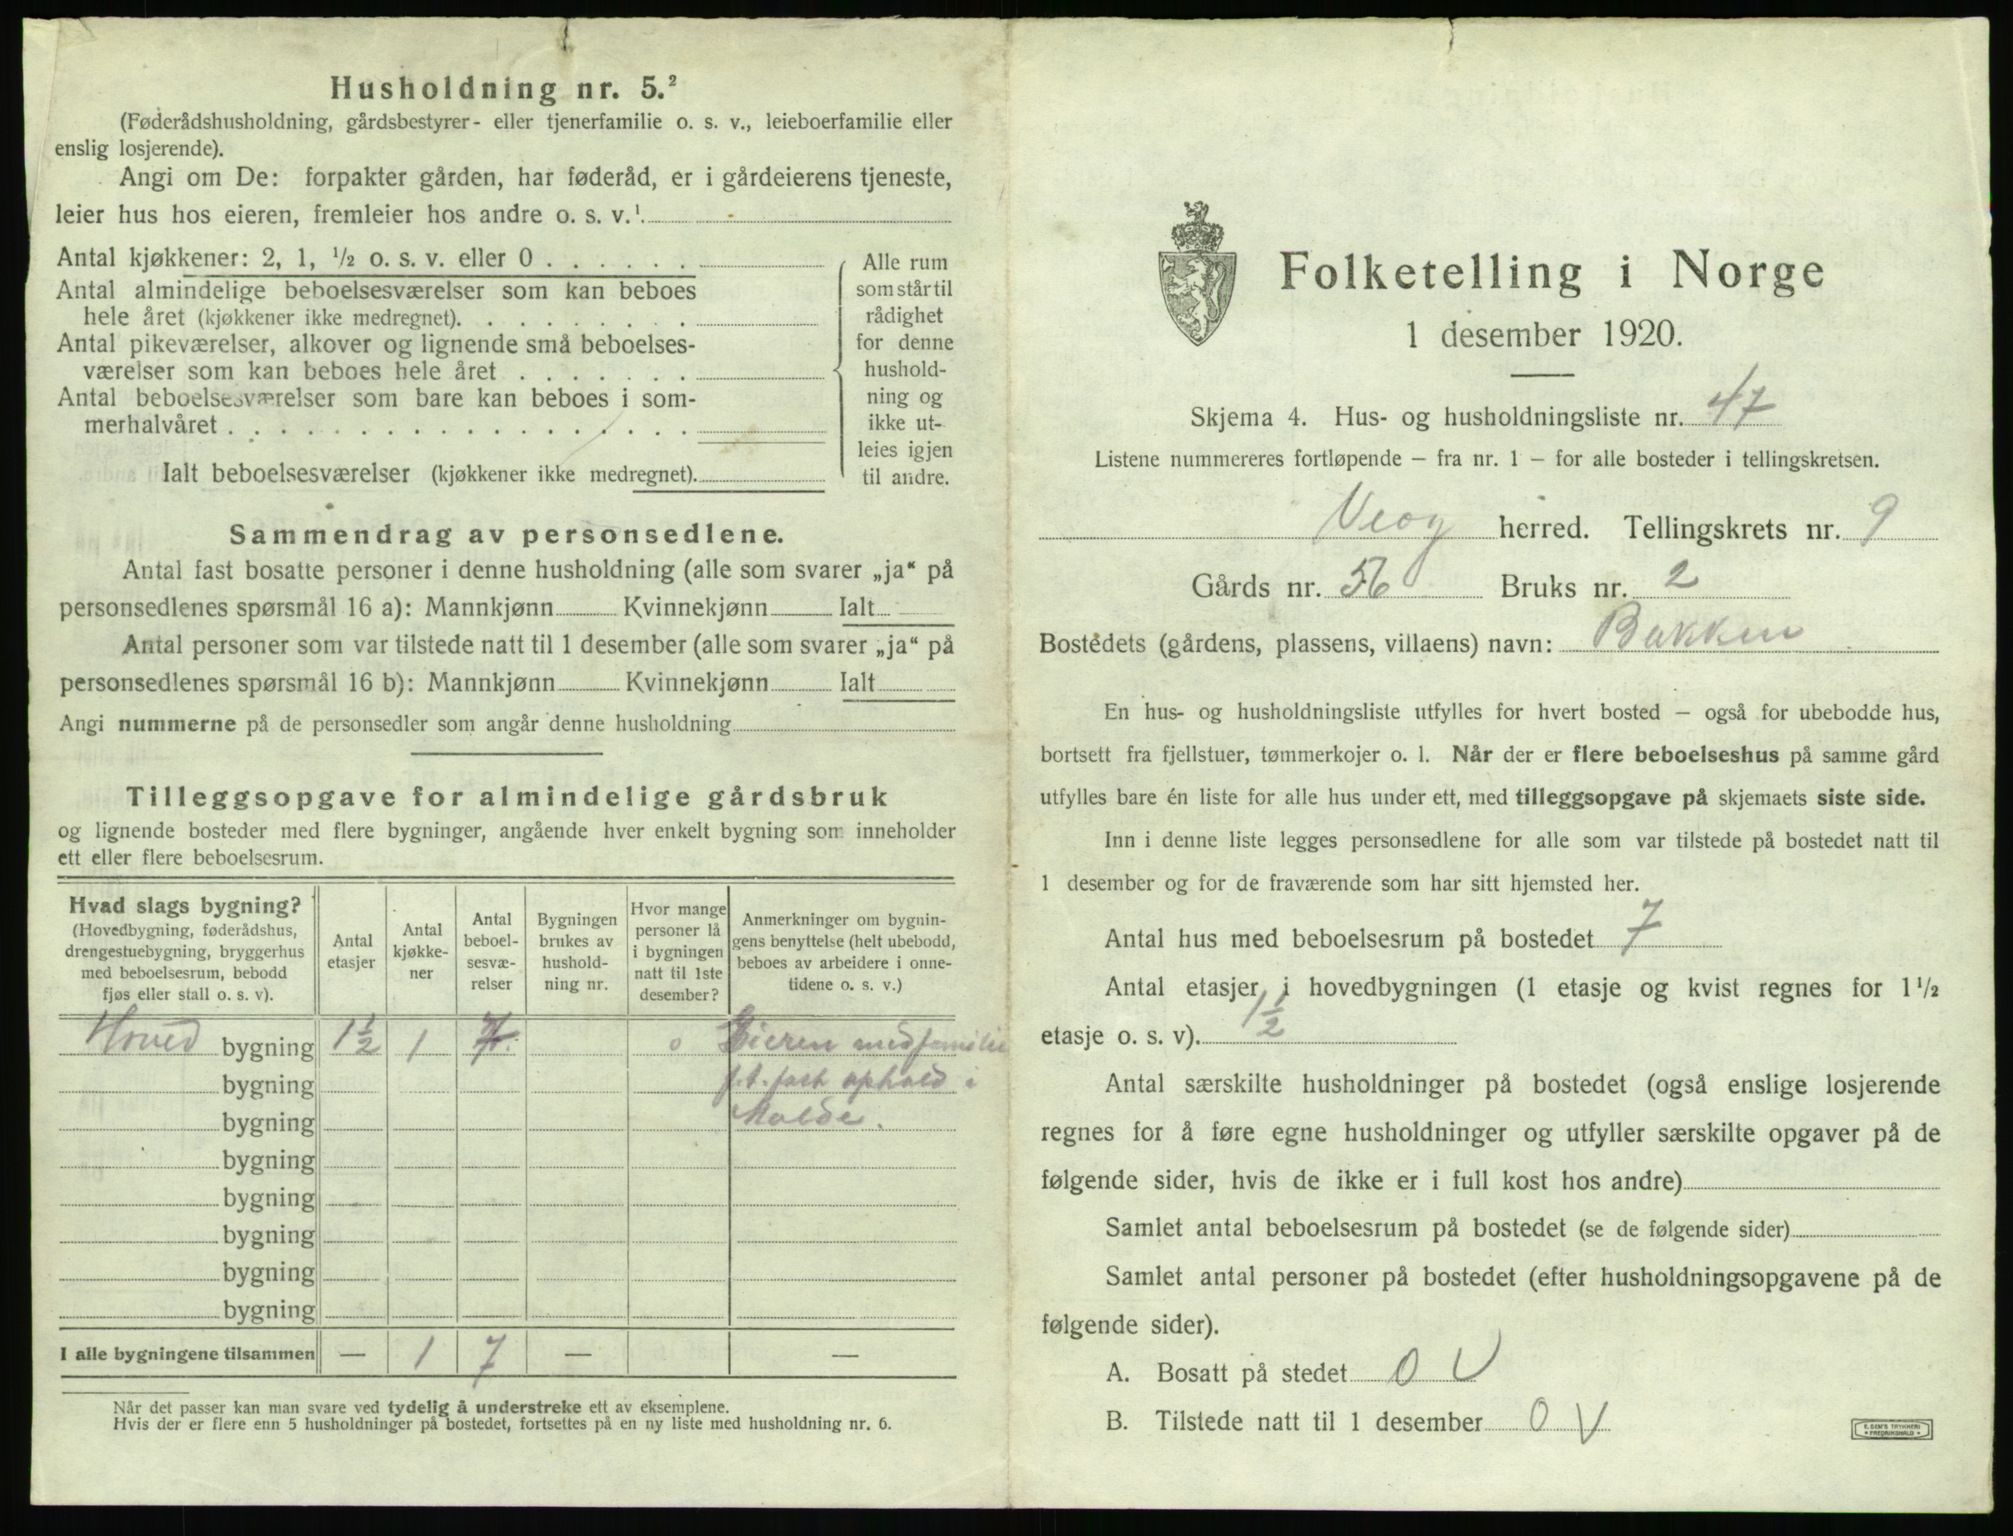 Husholdning nr. 5.²
(Føderådshusholdning, gårdsbestyrer- eller tjenerfamilie o. s. v., leieboerfamilie eller
enslig losjerende).
Angi om De: forpakter gården, har føderåd, er i gårdeierens tjeneste,
leier hus hos eieren, fremleier hos andre o. s. v.¹
Antal kjøkkener: 2, 1, ½ o. s. v. eller 0 . . . . . .
Antal almindelige beboelsesværelser som kan beboes
hele året (kjøkkener ikke medregnet). . . . . . . . .
Antal pikeværelser, alkover og lignende små beboelses-
værelser som kan beboes hele året . . . . . . .
Antal beboelsesværelser som bare kan beboes i som-
merhalvåret . . . . . . . . . . . . . . . . . .
Ialt beboelsesværelser (kjøkkener ikke medregnet).
Alle rum
som står til
rådighet
for denne
hushold-
ning og
ikke ut-
leies igjen
til andre.
Sammendrag av personsedlene.
Antal fast bosatte personer i denne husholdning (alle som svarer „ja“ på
personsedlenes spørsmål 16 a): Mannkjønn Kvinnekjønn Ialt
Antal personer som var tilstede natt til 1 desember (alle som svarer „ja“ på
personsedlenes spørsmål 16 b): Mannkjønn Kvinnekjønn Ialt
Angi nummerne på de personsedler som angår denne husholdning
Tilleggsopgave for almindelige gårdsbruk
og lignende bosteder med flere bygninger, angående hver enkelt bygning som inneholder
ett eller flere beboelsesrum.
Hvad slags bygning?
(Hovedbygning, føderådshus,
drengestuebygning, bryggerhus
med beboelsesrum, bebodd
fjøs eller stall o. s. v).
Antal
etasjer
Antal
kjøkke-
ner
Antal
beboel-
sesvæ-
relser
Bygningen
brukes av
hushold-
ning nr.
Hvor mange
personer lå
i bygningen
natt til 1ste
desember?
Anmerkninger om bygnin-
gens benyttelse (helt ubebodd,
beboes av arbeidere i onne-
tidene o. s. v.)
Hoved bygning 1½ 1 7. 0 Eieren med familie
bygning f.t. fast ophold i
bygning Molde.
bygning
bygning
bygning
bygning
bygning
I alle bygningene tilsammen — 1 7 — —
Når det passer kan man svare ved tydelig å understreke ett av eksemplene.
Hvis der er flere enn 5 husholdninger på bostedet, fortsettes på en ny liste med husholdning nr. 6.
Folketelling i Norge
1 desember 1920.
Skjema 4. Hus- og husholdningsliste nr. 47
Listene nummereres fortløpende — fra nr. 1 — for alle bosteder i tellingskretsen.
Veøy herred. Tellingskrets nr. 9
Gårds nr. 56 Bruks nr. 2
Bostedets (gårdens, plassens, villaens) navn: Bakken
En hus- og husholdningsliste utfylles for hvert bosted — også for ubebodde hus,
bortsett fra fjellstuer, tømmerkojer o. l. Når der er flere beboelseshus på samme gård
utfylles bare én liste for alle hus under ett, med tilleggsopgave på skjemaets siste side.
Inn i denne liste legges personsedlene for alle som var tilstede på bostedet natt til
1 desember og for de fraværende som har sitt hjemsted her.
Antal hus med beboelsesrum på bostedet 7
Antal etasjer i hovedbygningen (1 etasje og kvist regnes for 1½
etasje o. s. v). 1½
Antal særskilte husholdninger på bostedet (også enslige losjerende
regnes for å føre egne husholdninger og utfyller særskilte opgaver på de
følgende sider, hvis de ikke er i full kost hos andre)
Samlet antal beboelsesrum på bostedet (se de følgende sider)
Samlet antal personer på bostedet (efter husholdningsopgavene på de
følgende sider).
A. Bosatt på stedet 0 V
B. Tilstede natt til 1 desember 0 V
E. SEM'S TRYKKERI
FREDRIKSHALD